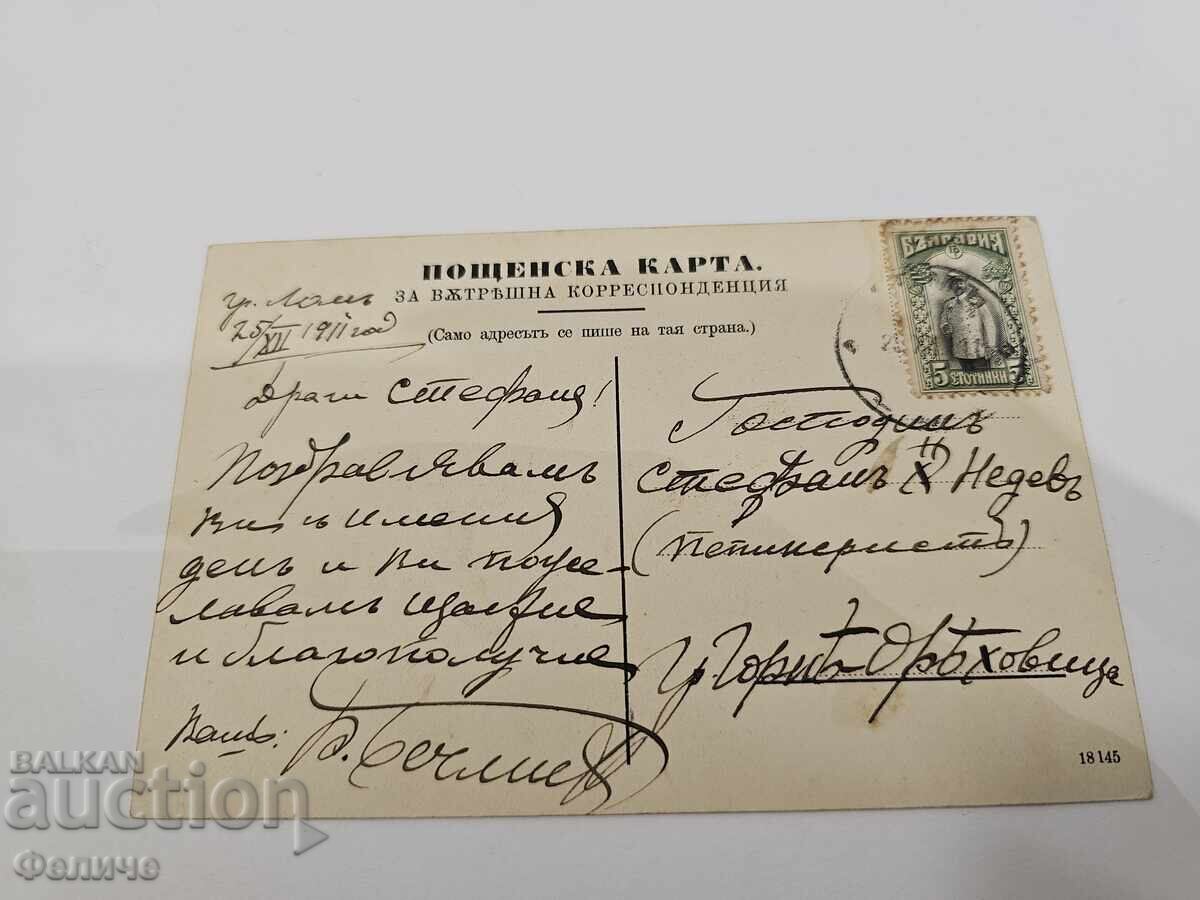 ПОЩЕНСКА КАРТА.
ЗА ВѪТРѢШНА КОРРЕСПОНДЕНЦИЯ
(Само адресътъ се пише на тая страна.)
гр. Ломъ
25/XII 1911 год
БЪЛГАРИЯ
5 СТОТИНКИ 5
Драги Стефане!
Поздравлявамъ
Ви съ имения
день и Ви поже-
лавамъ щастие
и благополучие
Вашъ:
Господинъ
Стефанъ X Недевъ
(пепинеристъ)
гр. Горнѣ-Орѣховица
18145
BALKAN
auction
Феличе